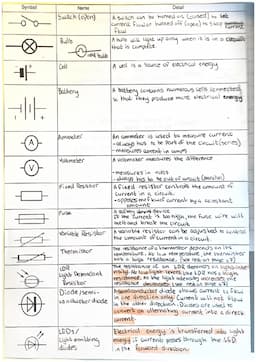 Symbol Name Detail
Switch (open)
A switch can be turned on (closed) to let
current flow or turned off (open) to stop current
flow
Bulb
A bulb will light up only when it is in a circuit
that is complete
Cell
A cell is a source of electrical energy
Battery
A battery contains numerous cells connected
so that they produce more electrical energy
A
Ammeter
An ammeter is used to measure current
- always has to be part of the circuit (series)
- measures current in amps
V
Voltmeter
A voltmeter measures the difference
- measures in volts
- always has to be out of circuit (parallel)
Fixed Resistor
A fixed resistor controls the amount of
current in a circuit.
- opposes the flow of current by a constant
amount
Fuse
A safety device
If the current is too high, the fuse wire will
melt and break the circuit.
Variable Resistor
A variable resistor can be adjusted to control
the amount of current in a circuit.
Thermistor
The resistance of a thermistor depends on its
temperature. At low temperature, the thermistor
has a large resistance.
LDR
Light Dependent
Resistor
The resistance of an LDR depends on light
Diode/semi-
conductor diode
A semiconductor diode allows current to flow
in one direction only. Current will not flow
in the other direction. Diodes are used to
convert an alternating current into a direct
current.
LEDs/
light emitting
diodes
Electrical energy is transferred into light
energy if current passes through the LED
in the forward direction